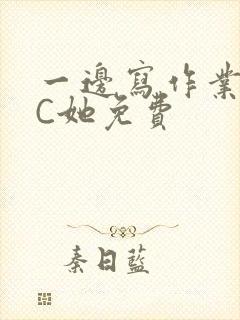 一邊寫作業
C她免費
秦日藍